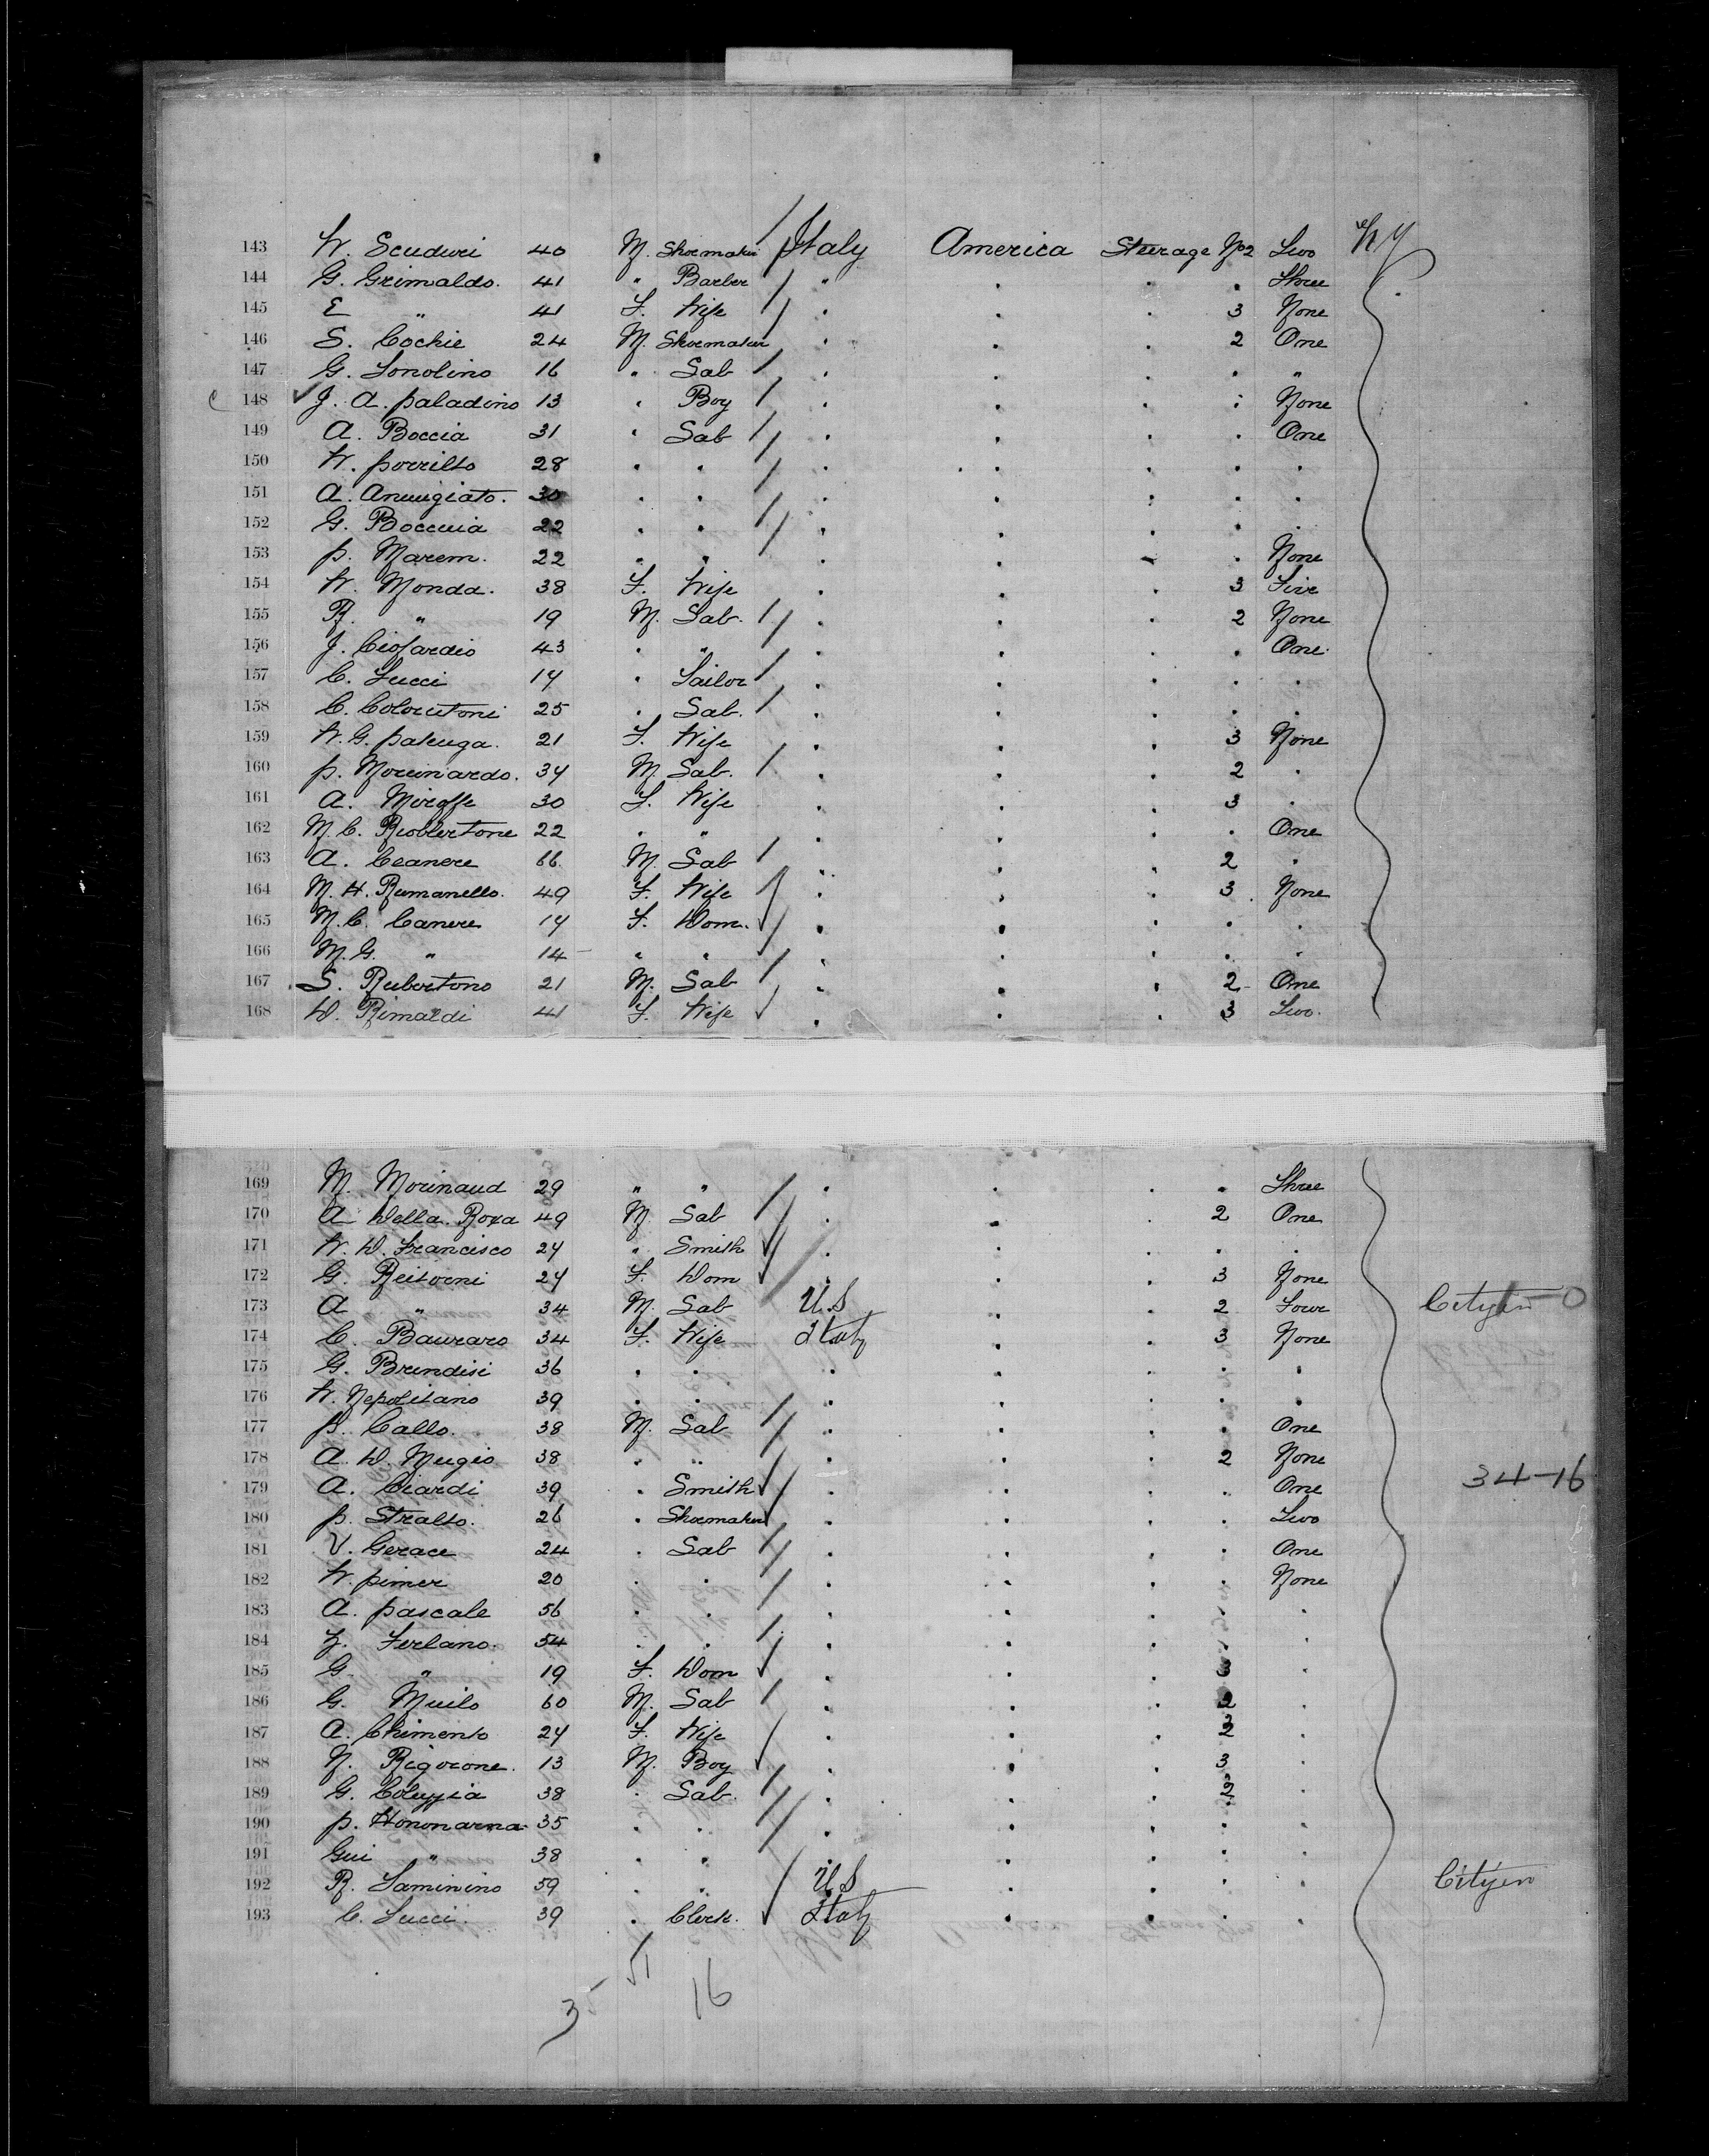 143 W. Scuderi 40 M. Shoemaker Italy America Steerage No 2 Two N Y
144 G. Grimaldo. 41 " Barber " . . . Three
145 E " 41 F. Wife . . . 3 None
146 S. Cochie 24 M. Shoemaker . . . 2 One
147 G. Sonolino 16 " Lab . . . . "
148 J. A. Paladino 13 . Boy . . . . None
149 A. Boccia 31 " Lab . . . . One
150 28 . . . . . . .
151 A. 30 . . . . . . .
152 G. Boccuia 22 . . . . . . .
153 P. Marem. 22 . . . . . . None
154 W. Monda. 38 F. Wife . . . 3 Five
155 R. " 19 M. Lab. . . . 2 None
156 J. Ciofardio 43 . " . . . . One
157 C. Lucci 14 . Sailor . . . . .
158 C. 25 . Lab. . . . . .
159 W. G. Palenga. 21 F. Wife . . . 3 None
160 P. 34 M. Lab. . . . 2 .
161 A. 30 F. Wife . . . 3 .
162 M. C. 22 . " . . . . One
163 A. Ceanere 66 M. Lab . . . 2 .
164 M. H. Rumanello. 49 F. Wife . . . 3 None
165 M. C. Canere 14 F. Dom. . . . . .
166 M. G. " 14 . . . . . . .
167 S. Rubertono 21 M. Lab . . . 2 One
168 D. Rimaldi 41 F. Wife . . . 3 Two.
169 M. Morinaud 29 " " . . . . Three
170 A Della. Roxa 49 M. Lab . . . 2 One
171 W. D. Francisco 24 " Smith . . . . .
172 G. Reitorni 24 F. Dom . . . 3 None
173 A " 34 M. Lab U.S . . 2 Four Cityen 0
174 C. Bauraro 34 F. Wife Italy . . 3 None
175 G. Brindisi 36 . . . . . . .
176 W. Nepolitano 39 . . . . . . .
177 P. Callo. 38 M. Lab . . . . One
178 A. D. Mugio 38 . " . . . 2 None 34-16
179 A. Ciardi 39 . Smith . . . . One
180 P. Stralto. 26 . Shoemaker . . . . Two
181 V. Gerace 24 . Lab . . . . One
182 W. Pimer 20 . . . . . . None
183 A. Pascale 56 . . . . . . .
184 Z. Ferlano. 54 . . . . . . .
185 G. " 19 F. Dom . . . 3 .
186 G. Muilo 60 M. Lab . . . 2 .
187 A. Chimento 24 F. Wife . . . 3 2 .
188 N. Rigorone. 13 M. Boy . . . 3 .
189 G. Coluzzia 38 . Lab. . . . 2 .
190 P. Hononarma 35 . . . . . . .
191 Gui " 38 . . . . . . .
192 R. Saminino 59 . . U.S . . . . Cityen
193 C. Lucci. 39 . Clerk. Italy . . . .
51
35 16